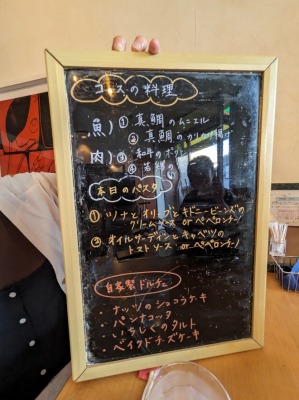 コースの料理
魚) ① 真鯛のムニエル
② 真鯛のカリカリ揚げ
肉) ③ 和牛の
④ 若鶏
本日のパスタ
① ツナとオリーブとキドニービーンズの
クリームソース or ペペロンチーノ
② オイルサーディンとキャベツの
トマトソース or ペペロンチーノ
自家製ドルチェ
・ナッツのショコラケーキ
・パンナコッタ
・いちじくのタルト
・ベイクドチーズケーキ